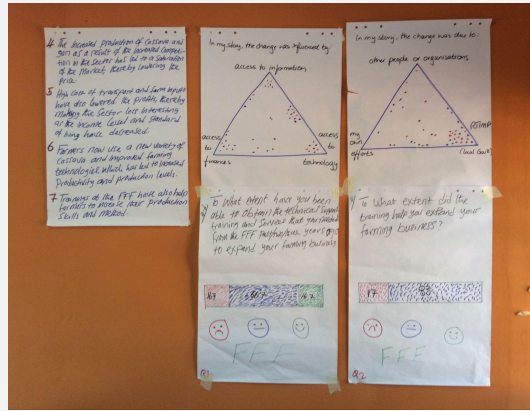 4 The increased production of Cassava and
gari as a result of the increased Competi-
tion in the Sector has led to a Saturation
of the Market, thereby lowering the
Price.
5 High Cost of transport and farm inputs
have also lowered the profits, thereby
making the Sector less interesting
as the income level and standard
of living have decreased.
6 Farmers now use a new variety of
Cassava and improved farming
technologies which has led to increased
Productivity and production levels.
7 Trainings at the FFF have also help
farmers to increase their production
Skills and method.
In my story, the change was influenced by:
access to information
access
to
finances
access
to
technology
To What extent have you been
able to obtain the technical Support
training and Services that you needed
from the FFF
to expand your farming business
FFF
Q1
In my story, the change was due to:
other people or organisations
my
own
efforts
(local Govt)
To What extent did the
training help you expand your
farming business?
FFF
Q2